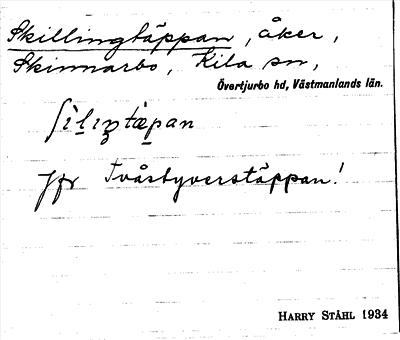 Skillingtäppan, åker,
Skinnarbo, Kila sn,
Övertjurbo hd, Västmanlands län.
Jfr Tvåstyverstäppan!
HARRY STÅHL 1934